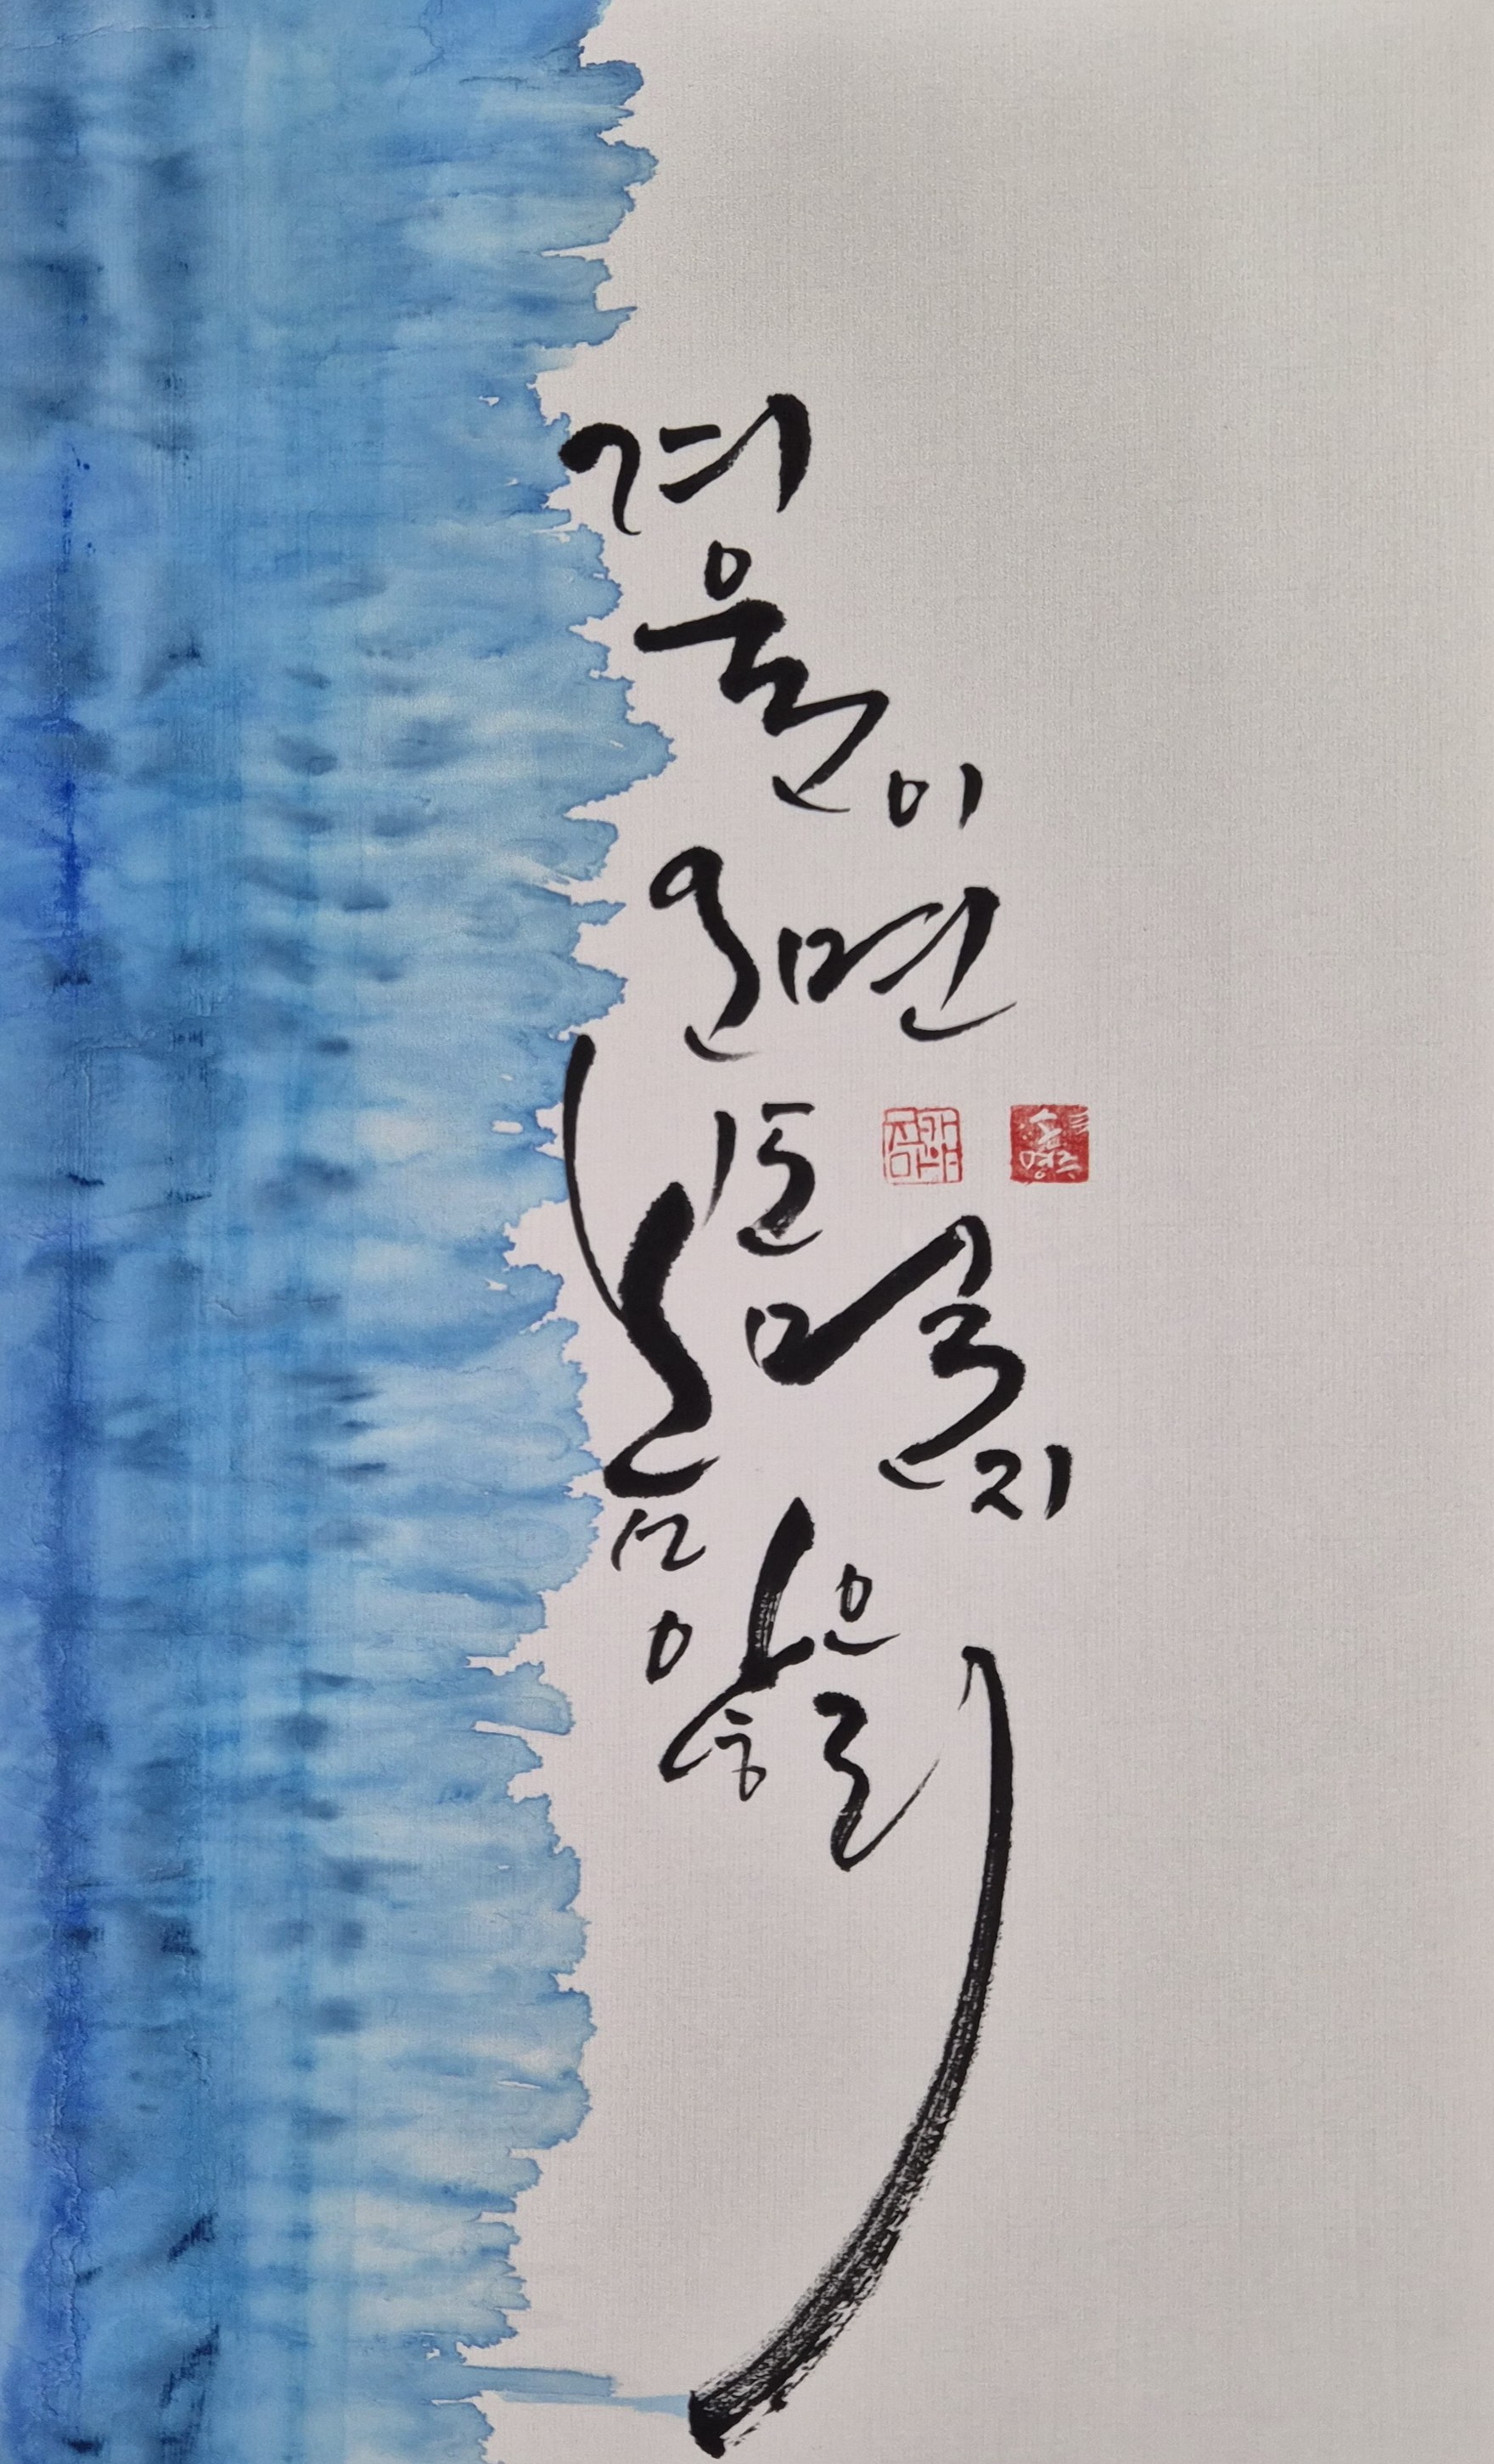 겨울이
오면
봄도
멀지
않으리